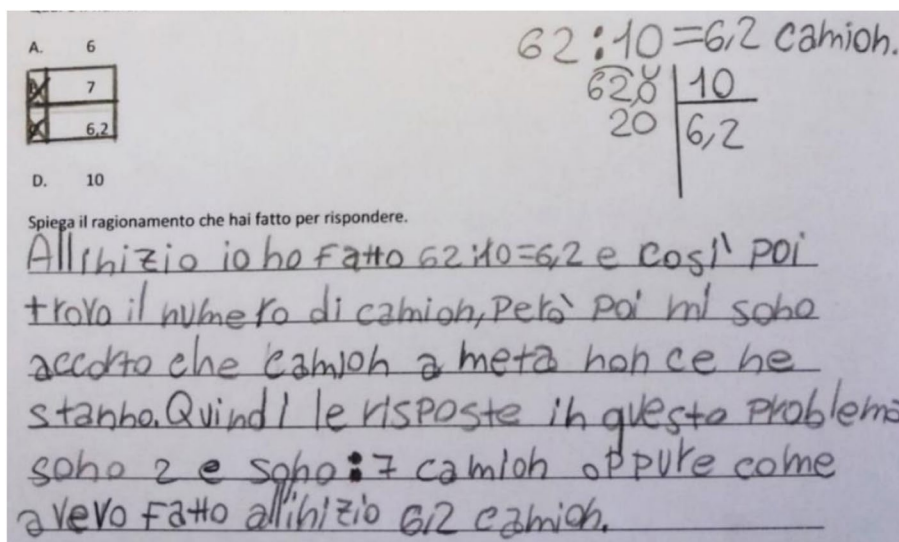 A. 6
B. 7
C. 6,2
D. 10
62:10=6,2 camion.
62,0 | 10
20 | 6,2
Spiega il ragionamento che hai fatto per rispondere.
All'inizio io ho fatto 62:10=6,2 e così poi
trovo il numero di camion, però poi mi sono
accorto che camion a metà non ce ne
stanno. Quindi le risposte in questo problema
sono 2 e sono: 7 camion oppure come
avevo fatto all'inizio 6,2 camion.